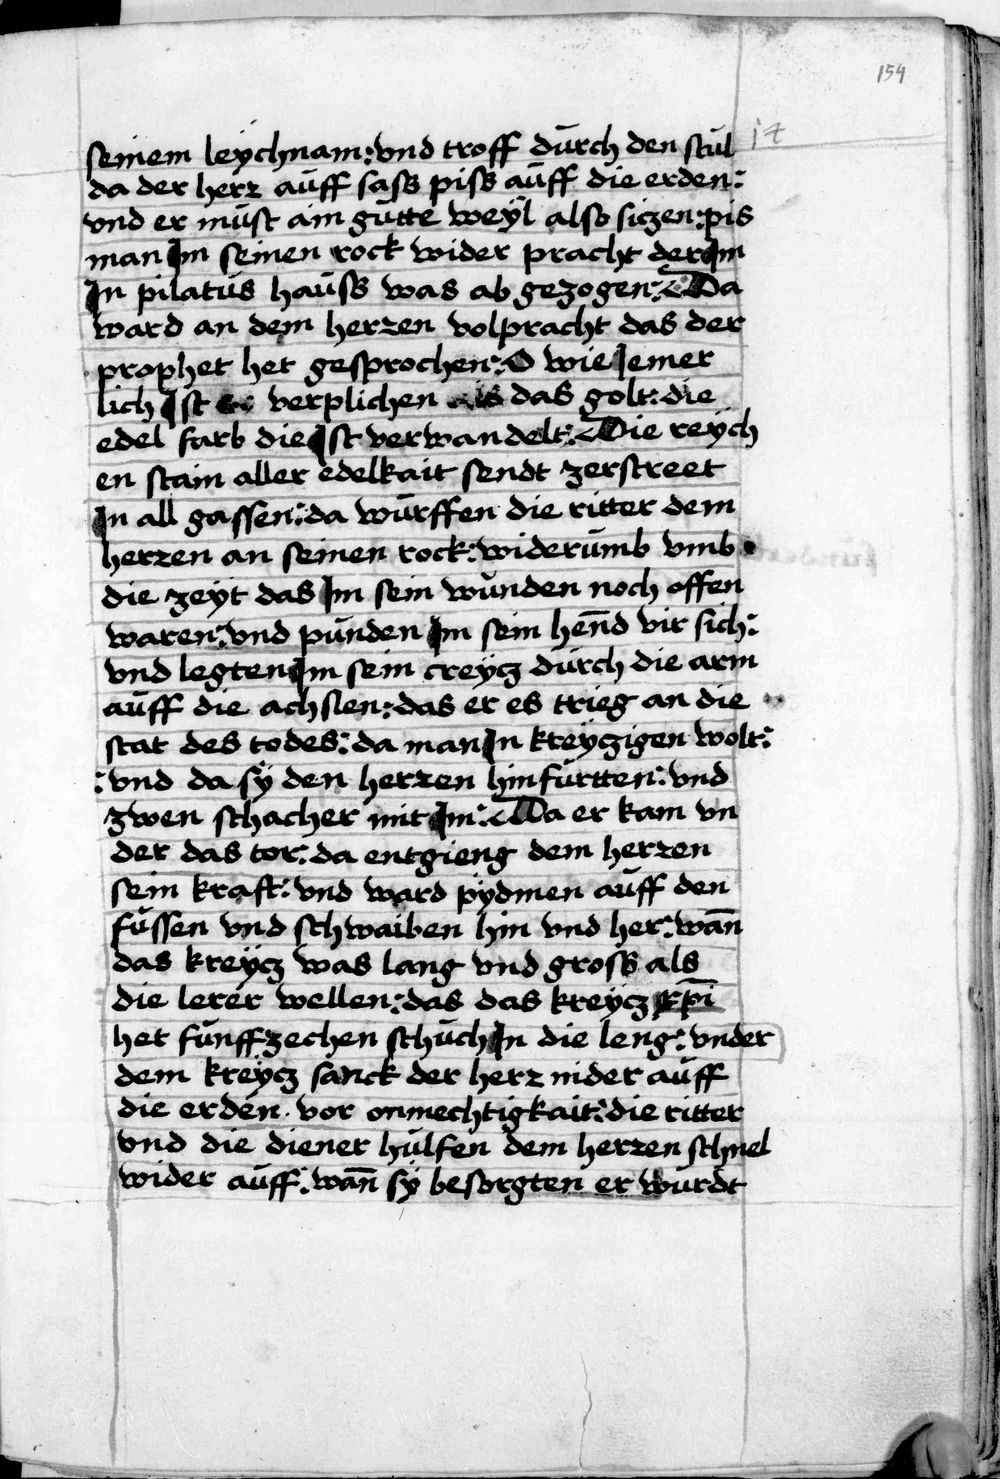 154
14
seinem leÿchnam: vnd troff dúrch den stúl
da der herz aúff sass piss aúff die erden:
vnd er múst ain gútte weÿl also siczen: pis
man Im seinen rock wider pracht der Im
In pilatús haúss was ab gezogen: Da
ward an dem herzen volpracht das der
prophet het gesprochen: O wie Iemer
lich Ist verplichen das golt: die
edel farb die Ist verwandelt: Die reÿch
en stain aller edelkait sendt zerstreet
In all gassen: da wúrffen die ritter dem
herzen an seinen rock: widerúmb vmb
die zeÿt das Im sein wúnden noch offen
waren: vnd púnden Im sein hend̄ vir sich:
vnd legten Im sein creÿcz dúrch die arm
aúff die achslen: das er es trieg an die
stat des todes: da man In kreÿczigen wolt:
: vnd da sÿ den herzen hin fúrtten: vnd
zwen schacher mit Im: Da er kam vn
der das tor: da entgieng dem herzen
sein kraft: vnd ward pÿdmen aúff den
fússen vnd schwaiben hin vnd her: wan̄
das kreÿcz was lang vnd gross als
die lerer wellen: das das kreÿcz xp̄i
het fúnffzechen schúch In die leng: vnder
dem kreÿcz sanck der herz nider aúff
die erden vor onmechtigkait: die ritter
vnd die diener húlfen dem herzen schnel
wider aúff: wan̄ sÿ besorgten er wúrdt